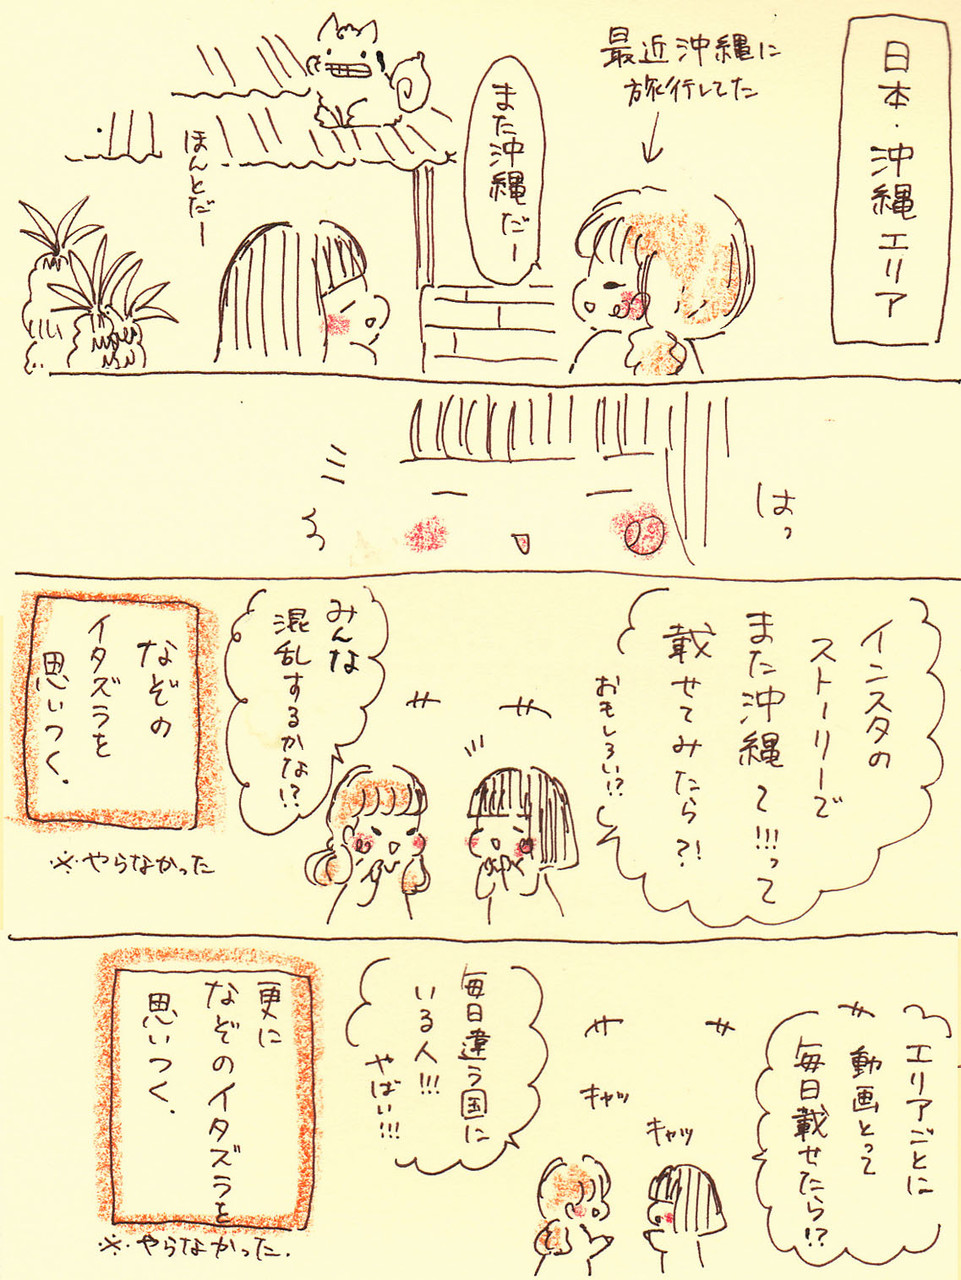 日本・沖縄エリア
最近沖縄に
旅行してた
また沖縄だー
ほんとだー
はっ
インスタの
ストーリーで
また沖縄て!!!って
載せてみたら?!
おもしろい!?
みんな
混乱するかな!?
なぞの
イタズラを
思いつく.
※やらなかった
エリアごとに
動画とって
毎日載せたら!?
キャッ
キャッ
毎日違う国に
いる人!!!
やばい!!!
更に
なぞのイタズラを
思いつく.
※やらなかった.